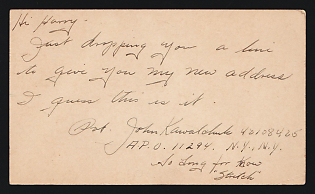 Hi Harry -
Just dropping you a line
to give you my new address
I guess this is it.
Pvt. John Kawalchuk 42108425
A.P.O. 11294. N.Y., N.Y.
So Long for Now